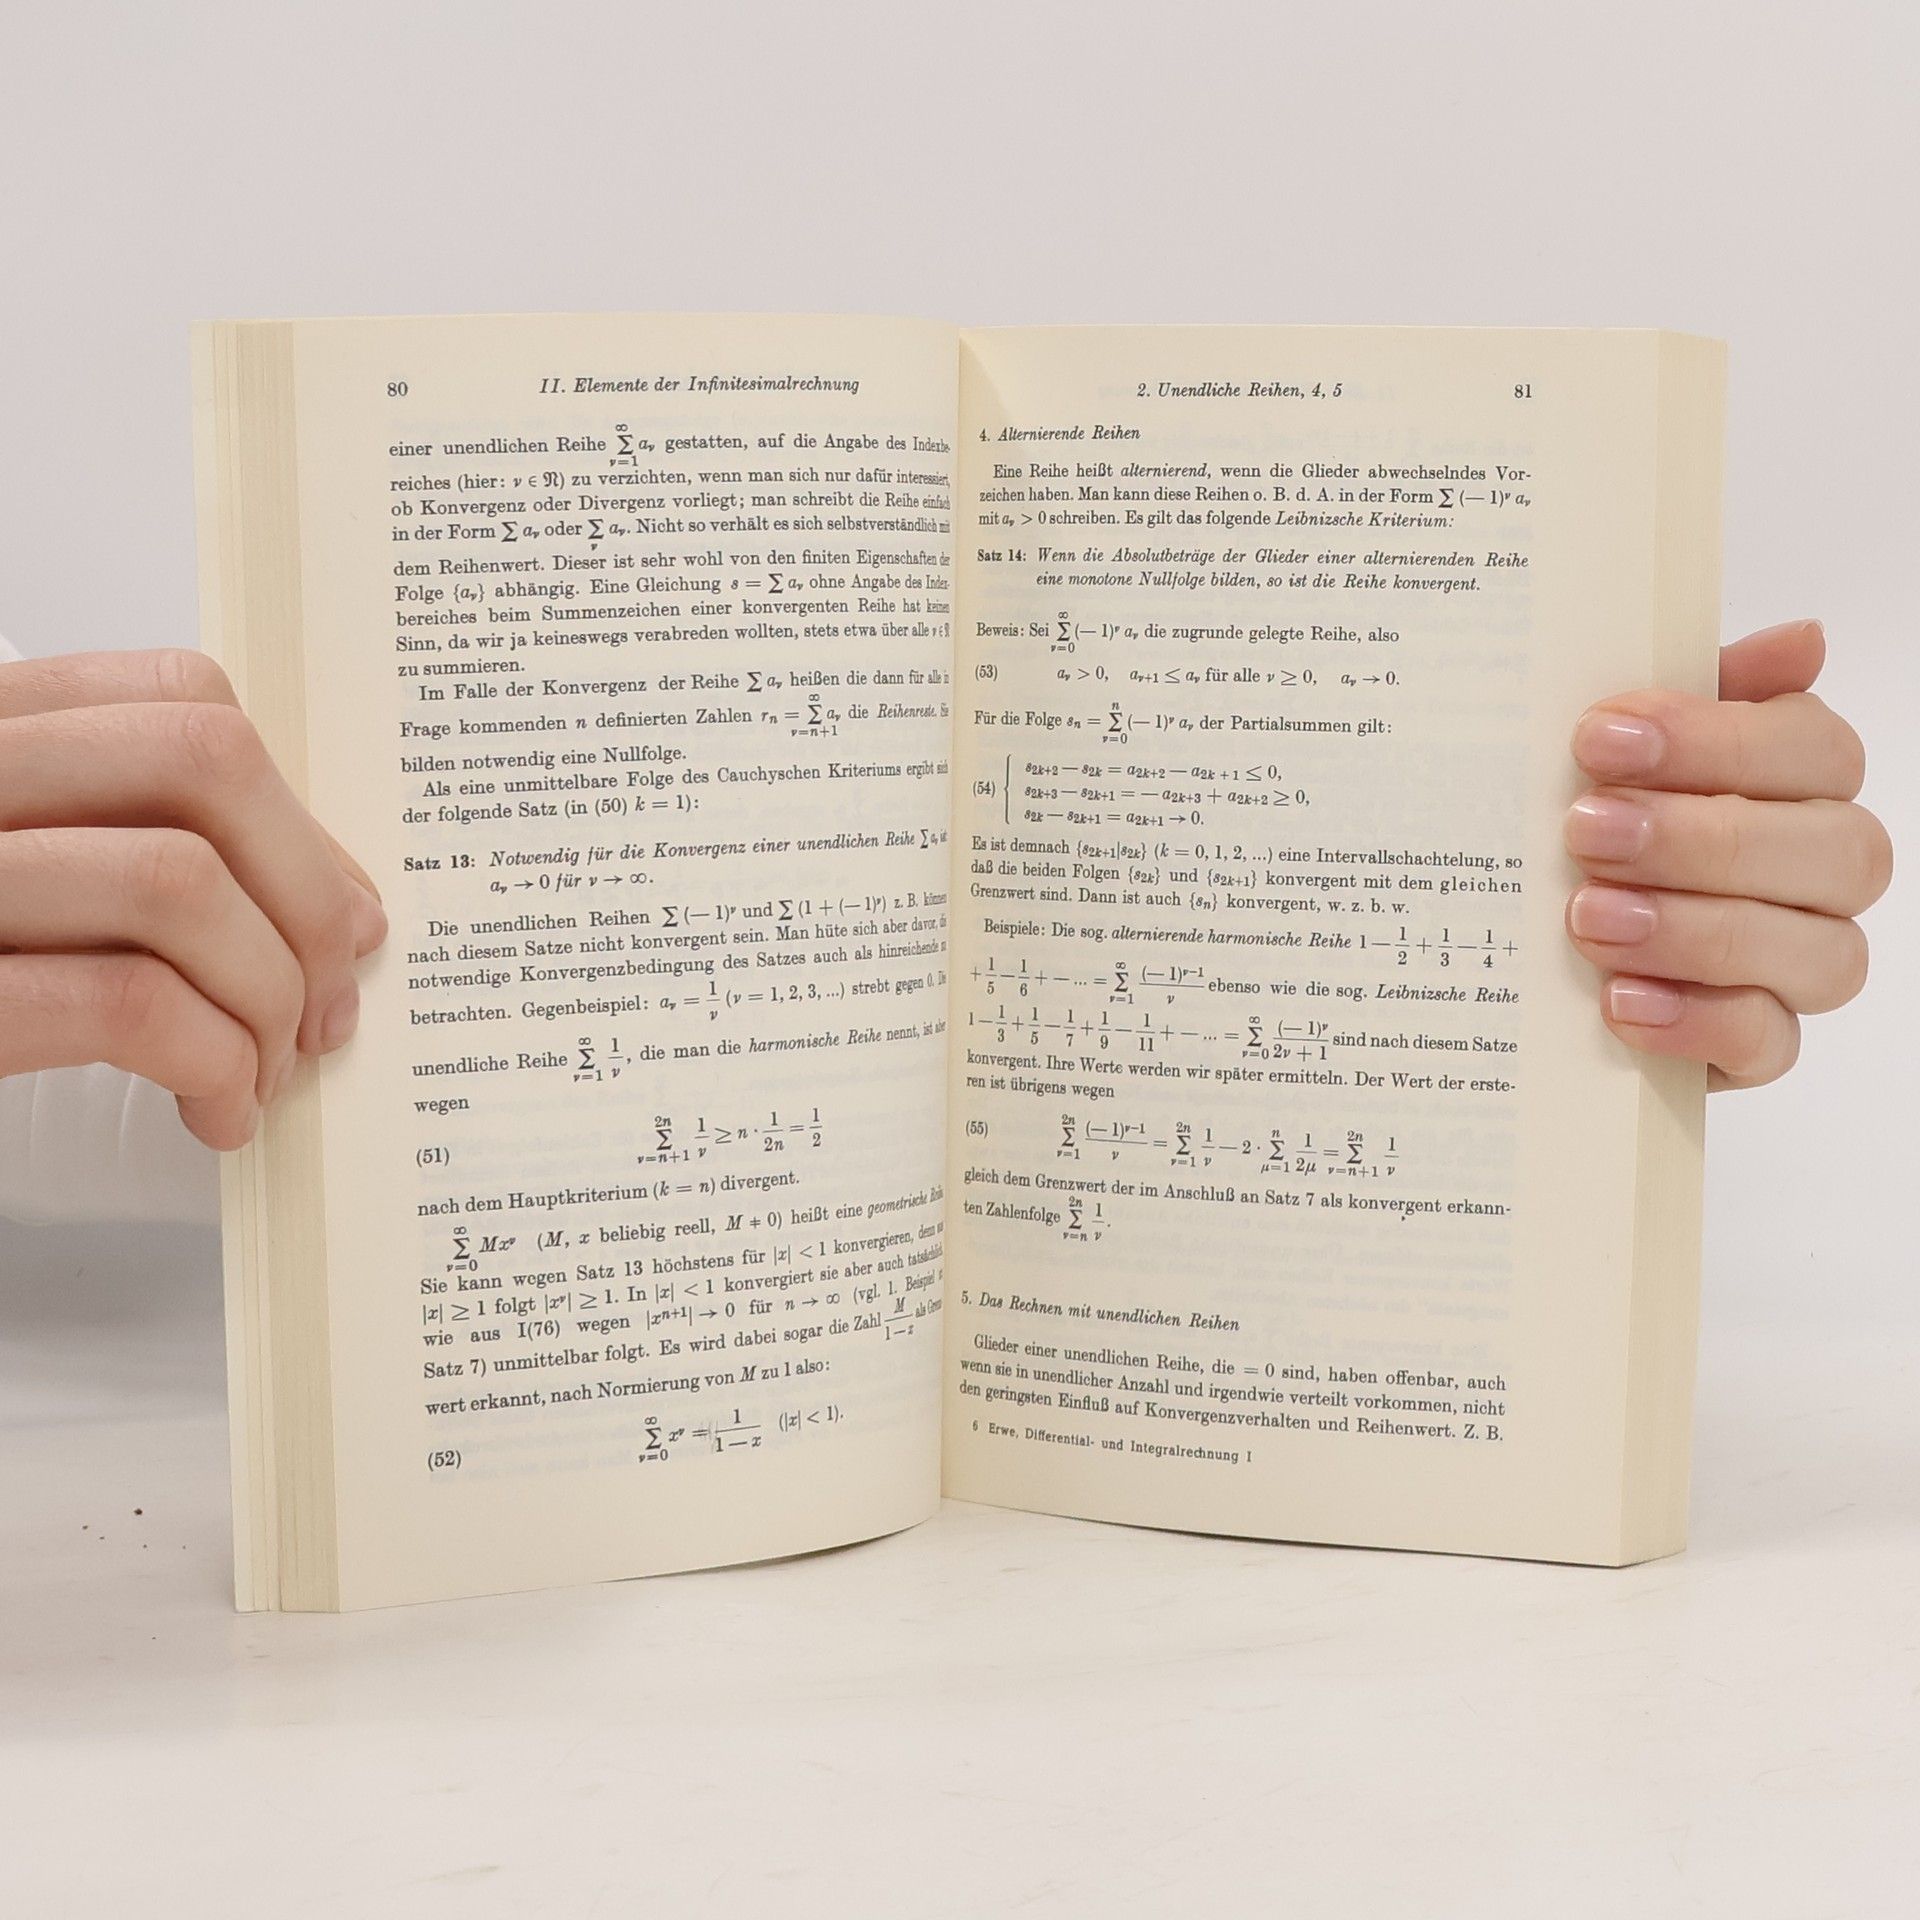 80 II. Elemente der Infinitesimalrechnung
einer unendlichen Reihe ∞∑ν=1 aν gestatten, auf die Angabe des Indexbe-
reiches (hier: ν ∈ 𝔑) zu verzichten, wenn man sich nur dafür interessiert,
ob Konvergenz oder Divergenz vorliegt; man schreibt die Reihe einfach
in der Form ∑ aν oder ∑ν aν. Nicht so verhält es sich selbstverständlich mit
dem Reihenwert. Dieser ist sehr wohl von den finiten Eigenschaften der
Folge {aν} abhängig. Eine Gleichung s = ∑ aν ohne Angabe des Index-
bereiches beim Summenzeichen einer konvergenten Reihe hat keinen
Sinn, da wir ja keineswegs verabreden wollten, stets etwa über alle ν ∈ 𝔑
zu summieren.
Im Falle der Konvergenz der Reihe ∑ aν heißen die dann für alle in
Frage kommenden n definierten Zahlen rn = ∞∑ν=n+1 aν die Reihenreste. Sie
bilden notwendig eine Nullfolge.
Als eine unmittelbare Folge des Cauchyschen Kriteriums ergibt sich
der folgende Satz (in (50) k = 1):
Satz 13: Notwendig für die Konvergenz einer unendlichen Reihe ∑ aν ist
aν → 0 für ν → ∞.
Die unendlichen Reihen ∑ (— 1)ν und ∑ (1 + (— 1)ν) z. B. können
nach diesem Satze nicht konvergent sein. Man hüte sich aber davor, die
notwendige Konvergenzbedingung des Satzes auch als hinreichende zu
betrachten. Gegenbeispiel: aν = 1/ν (ν = 1, 2, 3, ...) strebt gegen 0. Die
unendliche Reihe ∞∑ν=1 1/ν, die man die harmonische Reihe nennt, ist aber
wegen
(51) 2n∑ν=n+1 1/ν ≥ n · 1/2n = 1/2
nach dem Hauptkriterium (k = n) divergent.
∞∑ν=0 Mxν (M, x beliebig reell, M ≠ 0) heißt eine geometrische Reihe
Sie kann wegen Satz 13 höchstens für |x| < 1 konvergieren, denn aus
|x| ≥ 1 folgt |xν| ≥ 1. In |x| < 1 konvergiert sie aber auch tatsächlich
wie aus I(76) wegen |xn+1| → 0 für n → ∞ (vgl. 1. Beispiel zu
Satz 7) unmittelbar folgt. Es wird dabei sogar die Zahl M/1—x als Grenz
wert erkannt, nach Normierung von M zu 1 also:
(52) ∞∑ν=0 xν = 1/1 — x (|x| < 1).
2. Unendliche Reihen, 4, 5 81
4. Alternierende Reihen
Eine Reihe heißt alternierend, wenn die Glieder abwechselndes Vor-
zeichen haben. Man kann diese Reihen o. B. d. A. in der Form ∑ (— 1)ν aν
mit aν > 0 schreiben. Es gilt das folgende Leibnizsche Kriterium:
Satz 14: Wenn die Absolutbeträge der Glieder einer alternierenden Reihe
eine monotone Nullfolge bilden, so ist die Reihe konvergent.
Beweis: Sei ∞∑ν=0 (— 1)ν aν die zugrunde gelegte Reihe, also
(53) aν > 0, aν+1 ≤ aν für alle ν ≥ 0, aν → 0.
Für die Folge sn = n∑ν=0 (— 1)ν aν der Partialsummen gilt:
s2k+2 — s2k = a2k+2 — a2k+1 ≤ 0,
(54) s2k+3 — s2k+1 = — a2k+3 + a2k+2 ≥ 0,
s2k — s2k+1 = a2k+1 → 0.
Es ist demnach {s2k+1|s2k} (k = 0, 1, 2, ...) eine Intervallschachtelung, so
daß die beiden Folgen {s2k} und {s2k+1} konvergent mit dem gleichen
Grenzwert sind. Dann ist auch {sn} konvergent, w. z. b. w.
Beispiele: Die sog. alternierende harmonische Reihe 1 — 1/2 + 1/3 — 1/4 +
+ 1/5 — 1/6 + — ... = ∞∑ν=1 (— 1)ν—1/ν ebenso wie die sog. Leibnizsche Reihe
1 — 1/3 + 1/5 — 1/7 + 1/9 — 1/11 + — ... = ∞∑ν=0 (— 1)ν/2ν + 1 sind nach diesem Satze
konvergent. Ihre Werte werden wir später ermitteln. Der Wert der erste-
ren ist übrigens wegen
(55) 2n∑ν=1 (—1)ν—1/ν = 2n∑ν=1 1/ν — 2 · n∑μ=1 1/2μ = 2n∑ν=n+1 1/ν
gleich dem Grenzwert der im Anschluß an Satz 7 als konvergent erkann-
ten Zahlenfolge 2n∑ν=n 1/ν.
5. Das Rechnen mit unendlichen Reihen
Glieder einer unendlichen Reihe, die = 0 sind, haben offenbar, auch
wenn sie in unendlicher Anzahl und irgendwie verteilt vorkommen, nicht
den geringsten Einfluß auf Konvergenzverhalten und Reihenwert. Z. B.
6 Erwe, Differential- und Integralrechnung I